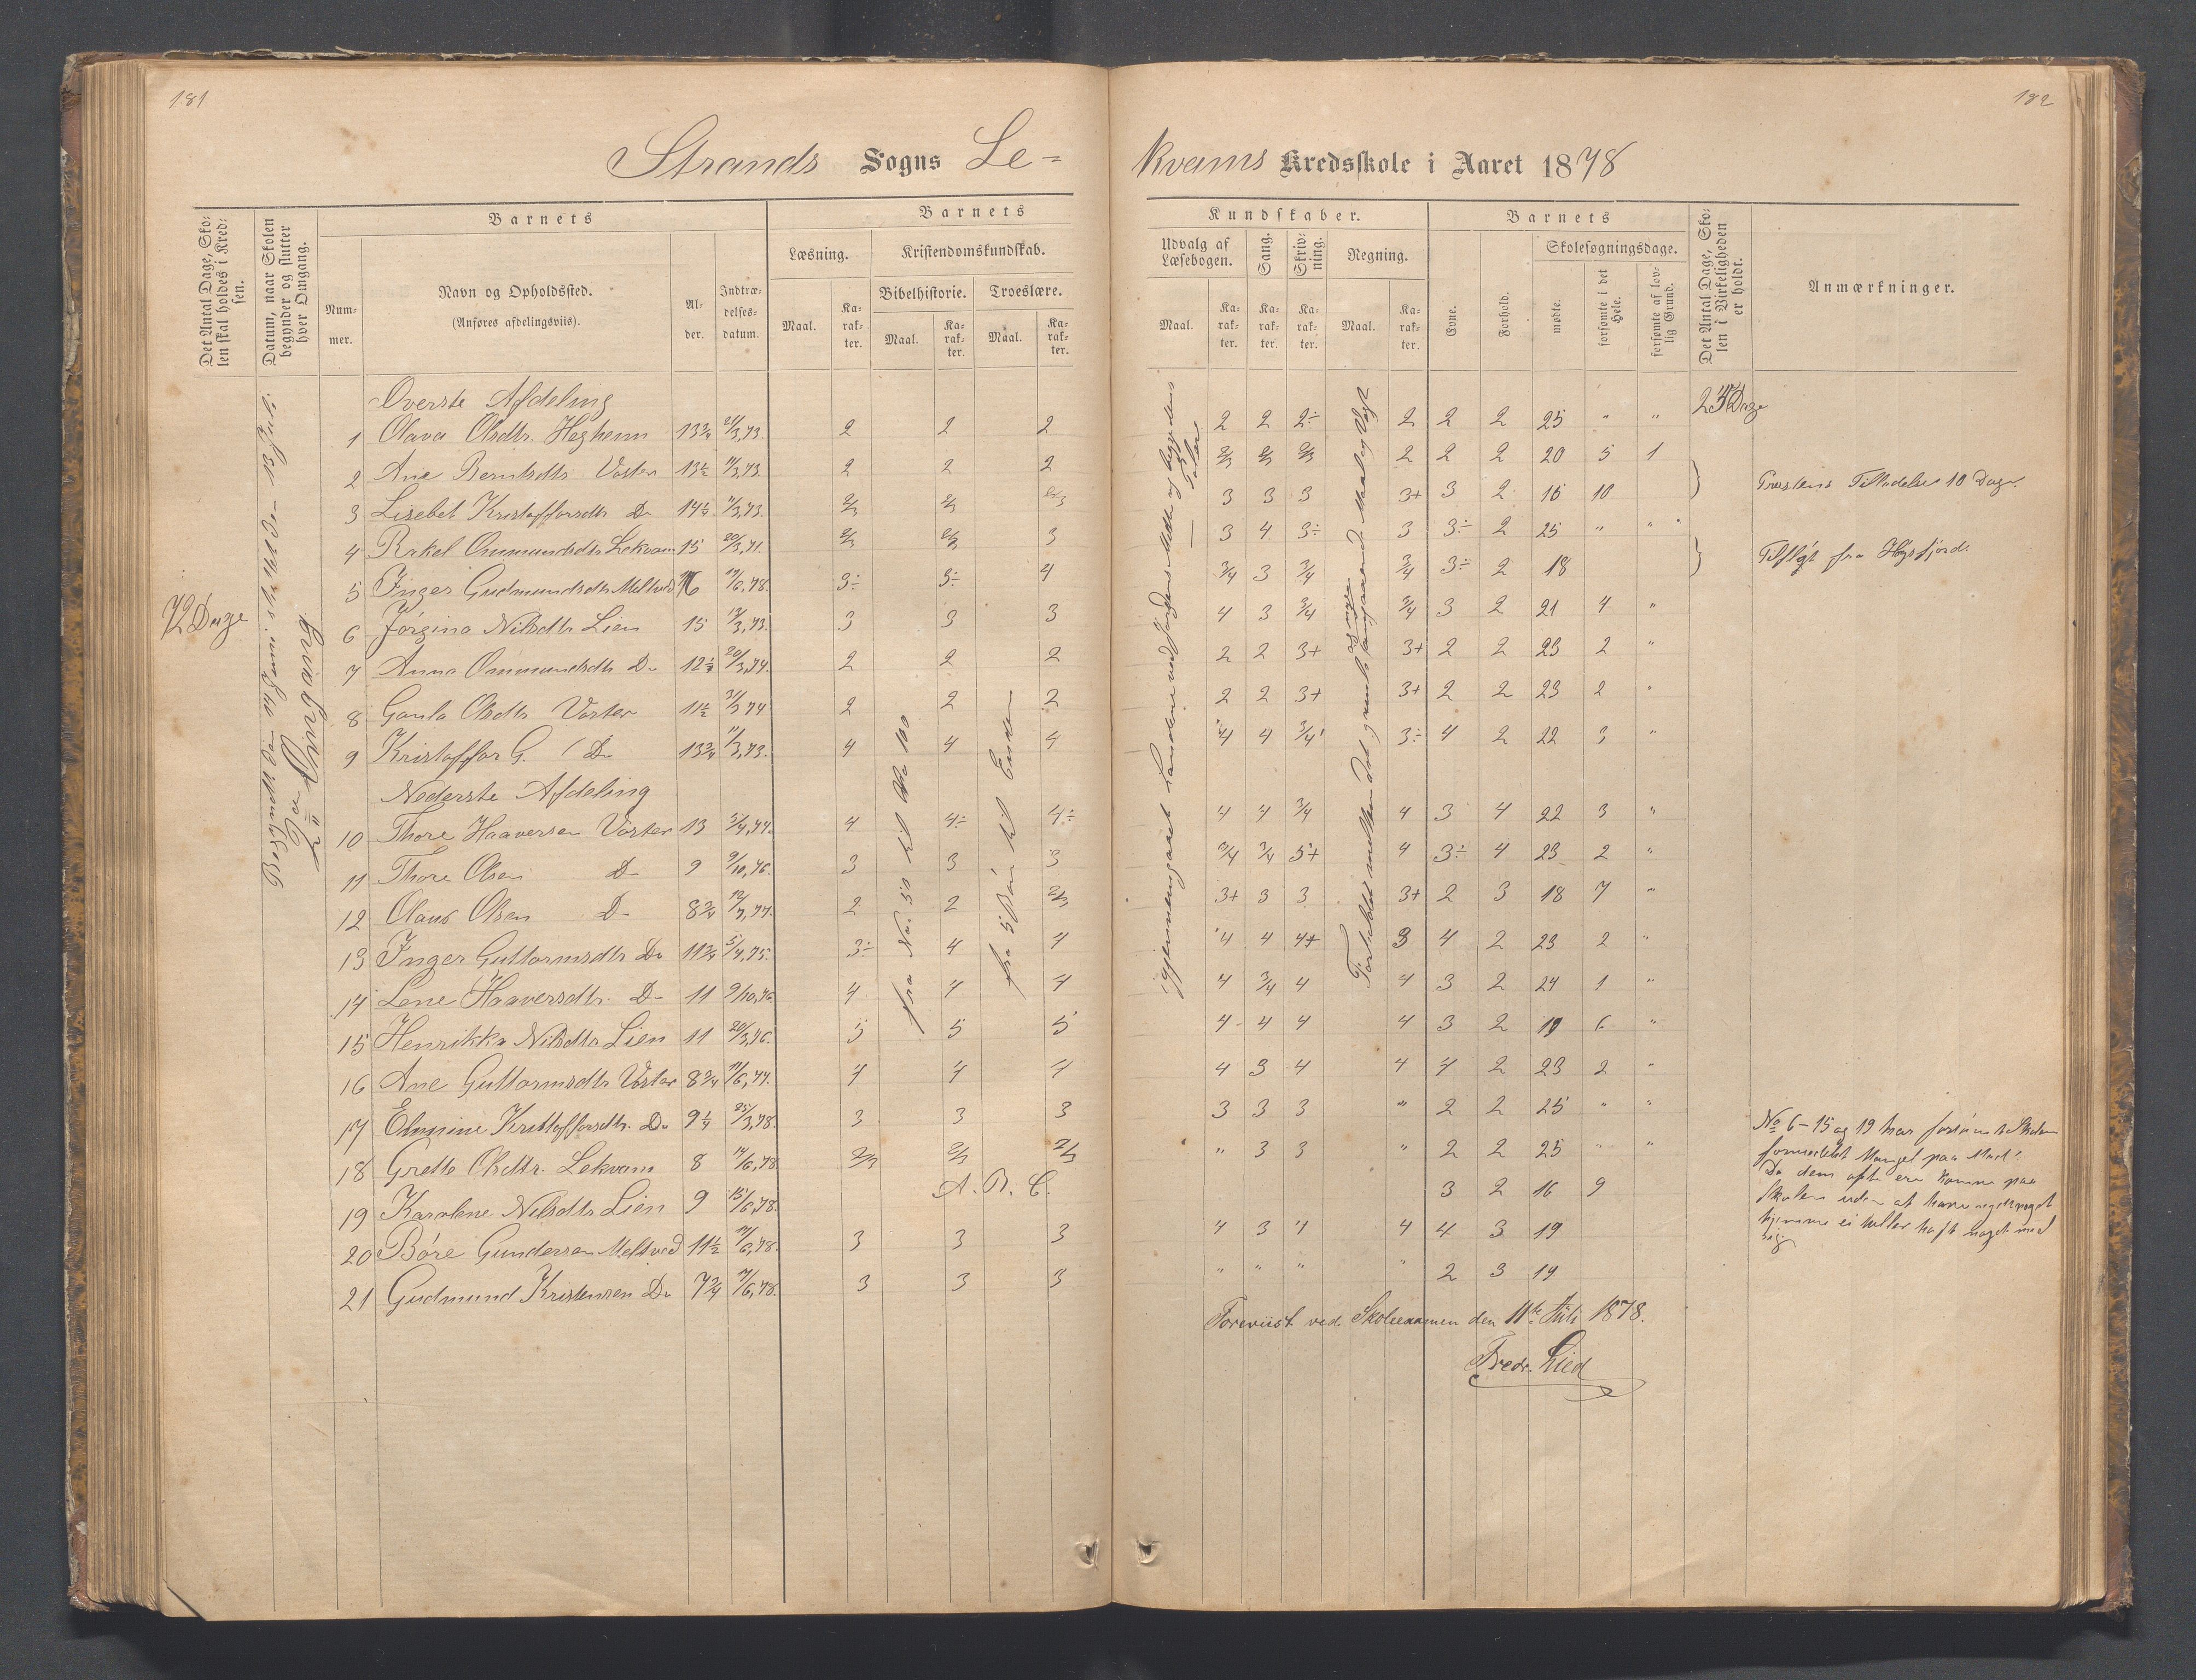 181
182
Strands Sogns Le=
kvams Kredsskole i Aaret 1878
Det Antal Dage, Skolen skal holdes i Kredsen.
Datum, naar Skolen begynder og slutter hver Omgang.
Barnets
Nummer.
Navn og Opholdssted.
(Anføres afdelingsviis).
Alder.
Indtrædelsesdatum.
Barnets
Læsning.
Kristendomskundskab.
Bibelhistorie.
Troeslære.
Maal.
Karakter.
Maal.
Karakter.
Maal.
Karakter.
Kundskaber.
Udvalg af Læsebogen.
Sang.
Skrivning.
Regning.
Maal.
Karakter.
Karakter.
Karakter.
Maal.
Karakter.
Barnets
Evne.
Forhold.
Skolesøgningsdage.
mødte.
forsømte i det Hele.
forsømte af lovlig Grund.
Det Antal Dage, Skolen i Virkeligheden er holdt.
Anmærkninger.
72 Dage
fra No. 50 til 100
fra 5 Bøn til Enden
Øverste Afdeling
25 Dage
1 Olava Olsdtr. Hegheim 13 3/4 21/3,73. 2 2 2 2 2 2÷ 2 2 2 25 " "
2 Ane Berntsdtr Voster 13 1/2 11/3,73. 2 2 2 2/3 2/3 2/3 2 2 2 20 5 1
3 Lisebet Kristoffersdtr Do 14 1/4 11/3,73. 2/3 2/3 2/3 3 3 3 3+ 3 2 15 10 Præstens Tilladelse 10 Dage.
4 Rakel Ommundsdtr Lekvam 15 20/3,71. 2/3 2/3 3 3 4 3÷ 3 3÷ 2 25 " "
5 Inger Gudmundsdtr Meltved 16 17/6,78. 3÷ 3÷ 4 3/4 3 3/4 3/4 3÷ 2 18 Tilflyt fra Høgsfjord.
6 Jørgina Nilsdtr Lien 15 13/3,73. 3 3 3 4 3 3/4 3/4 3 2 21 4 "
7 Anna Ommundsdtr Do 12 1/4 20/3,74. 2 2 2 2 2 3+ 3+ 2 2 23 2 "
8 Gaula Olsdtr Voster 11 1/2 31/3,74 2 2 2 2 2 3+ 3+ 2 2 23 2 "
9 Kristoffer G. Do 13 3/4 11/3,73. 4 4 4 4 4 3/4 3÷ 4 2 22 3 "
Nederste Afdeling
10 Thore Haaversen Voster 13 5/4,74. 4 4÷ 4÷ 4 4 3/4 4 3 4 22 3 "
11 Thore Olsen Do 9 9/10,76. 3 3 3 3/4 3/4 5+ 4 3÷ 4 23 2 "
12 Olaus Olsen Do 8 3/4 12/7,77. 2 2 2/3 3+ 3 3 3+ 2 3 18 7 "
13 Inger Guttormsdtr Do 11 3/4 5/4,75. 3÷ 4 4 4 4 4+ 3 4 2 23 2 "
14 Lene Haaversdtr. Do 11 9/10,76. 4 4 4 4 3/4 4 4 3 2 24 1 "
15 Henrikka Nilsdtr Lien 11 20/3,76. 5 5 5 4 4 4 4 3 2 19 6 "
16 Ane Guttormsdtr Voster 8 3/4 11/6,77. 4 4 4 4 3 4 4 4 2 23 2 "
17 Elmine Kristoffersdtr. Do 9 1/4 25/3,78. 3 3 3 3 3 3 " 2 2 25 " "
18 Grette Olsdtr. Lekvam 8 17/6,78 2/3 2/3 2/3 " 3 3 " 2 2 25 " "
19 Karoline Nilsdtr Lien 9 15/6,78. A. B. C. 3 2 16 9
20 Børe Gundersen Meltved 11 1/2 17/6,78. 3 3 3 4 3 4 4 4 3 19
21 Gudmund Kristensen Do 7 3/4 17/6,78. 3 3 3 " " " " 2 3 19
No 6-15 og 19 har forsømt Skolen
formedelst Mangel paa Mad.
Da dem ofte ere komne paa
Skolen uden at have noget
hjemme ei heller haft noget med
sig
Foreviist ved Skoleexamen den 11te Juli 1878.
Fredr. Lied